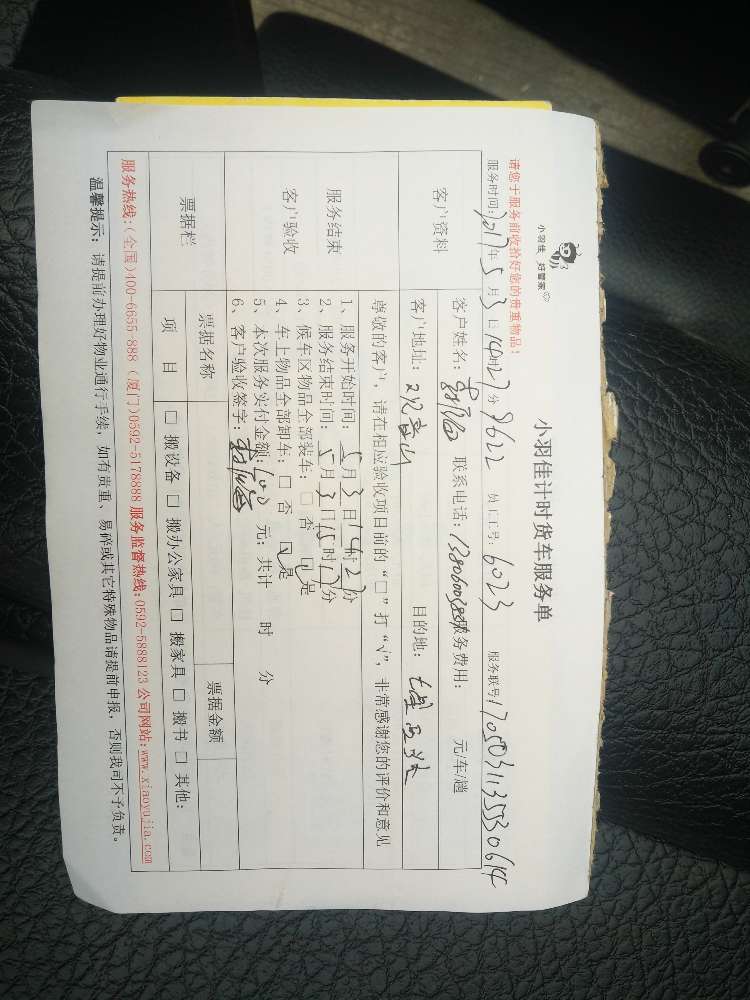 小羽佳 好管家
小羽佳计时货车服务单
请您于服务前收拾好您的贵重物品!
服务时间:2017年5月3日14时27分 9622 员工工号:6023 服务联号1705031135530614
客户资料
客户姓名: 联系电话: 服务费用: 元/车/趟
客户地址:观音山 目的地:
尊敬的客户,请在相应验收项目前的“□”打“√”,非常感谢您的评价和意见
服务结束
客户验收
1、服务开始时间:5月3日14时27分
2、服务结束时间:5月3日15时17分
3、候车区物品全部装车:□ 否 ☑ 是
4、车上物品全部卸车:□ 否 ☑ 是
5、本次服务实付金额:600 元;共计 时 分
6、客户验收签字:
票据栏
票据名称 票据金额
项 目 □ 搬设备 □ 搬办公家具 □ 搬家具 □ 搬书 □ 其他:
服务热线:(全国)400-6655-888 (厦门)0592-5178888 服务监督热线:0592-5888123 公司网站:www.xiaoyujia.com
温馨提示:请提前办理好物业通行手续,如有贵重、易碎或其它特殊物品请提前申报,否则我司不予负责。